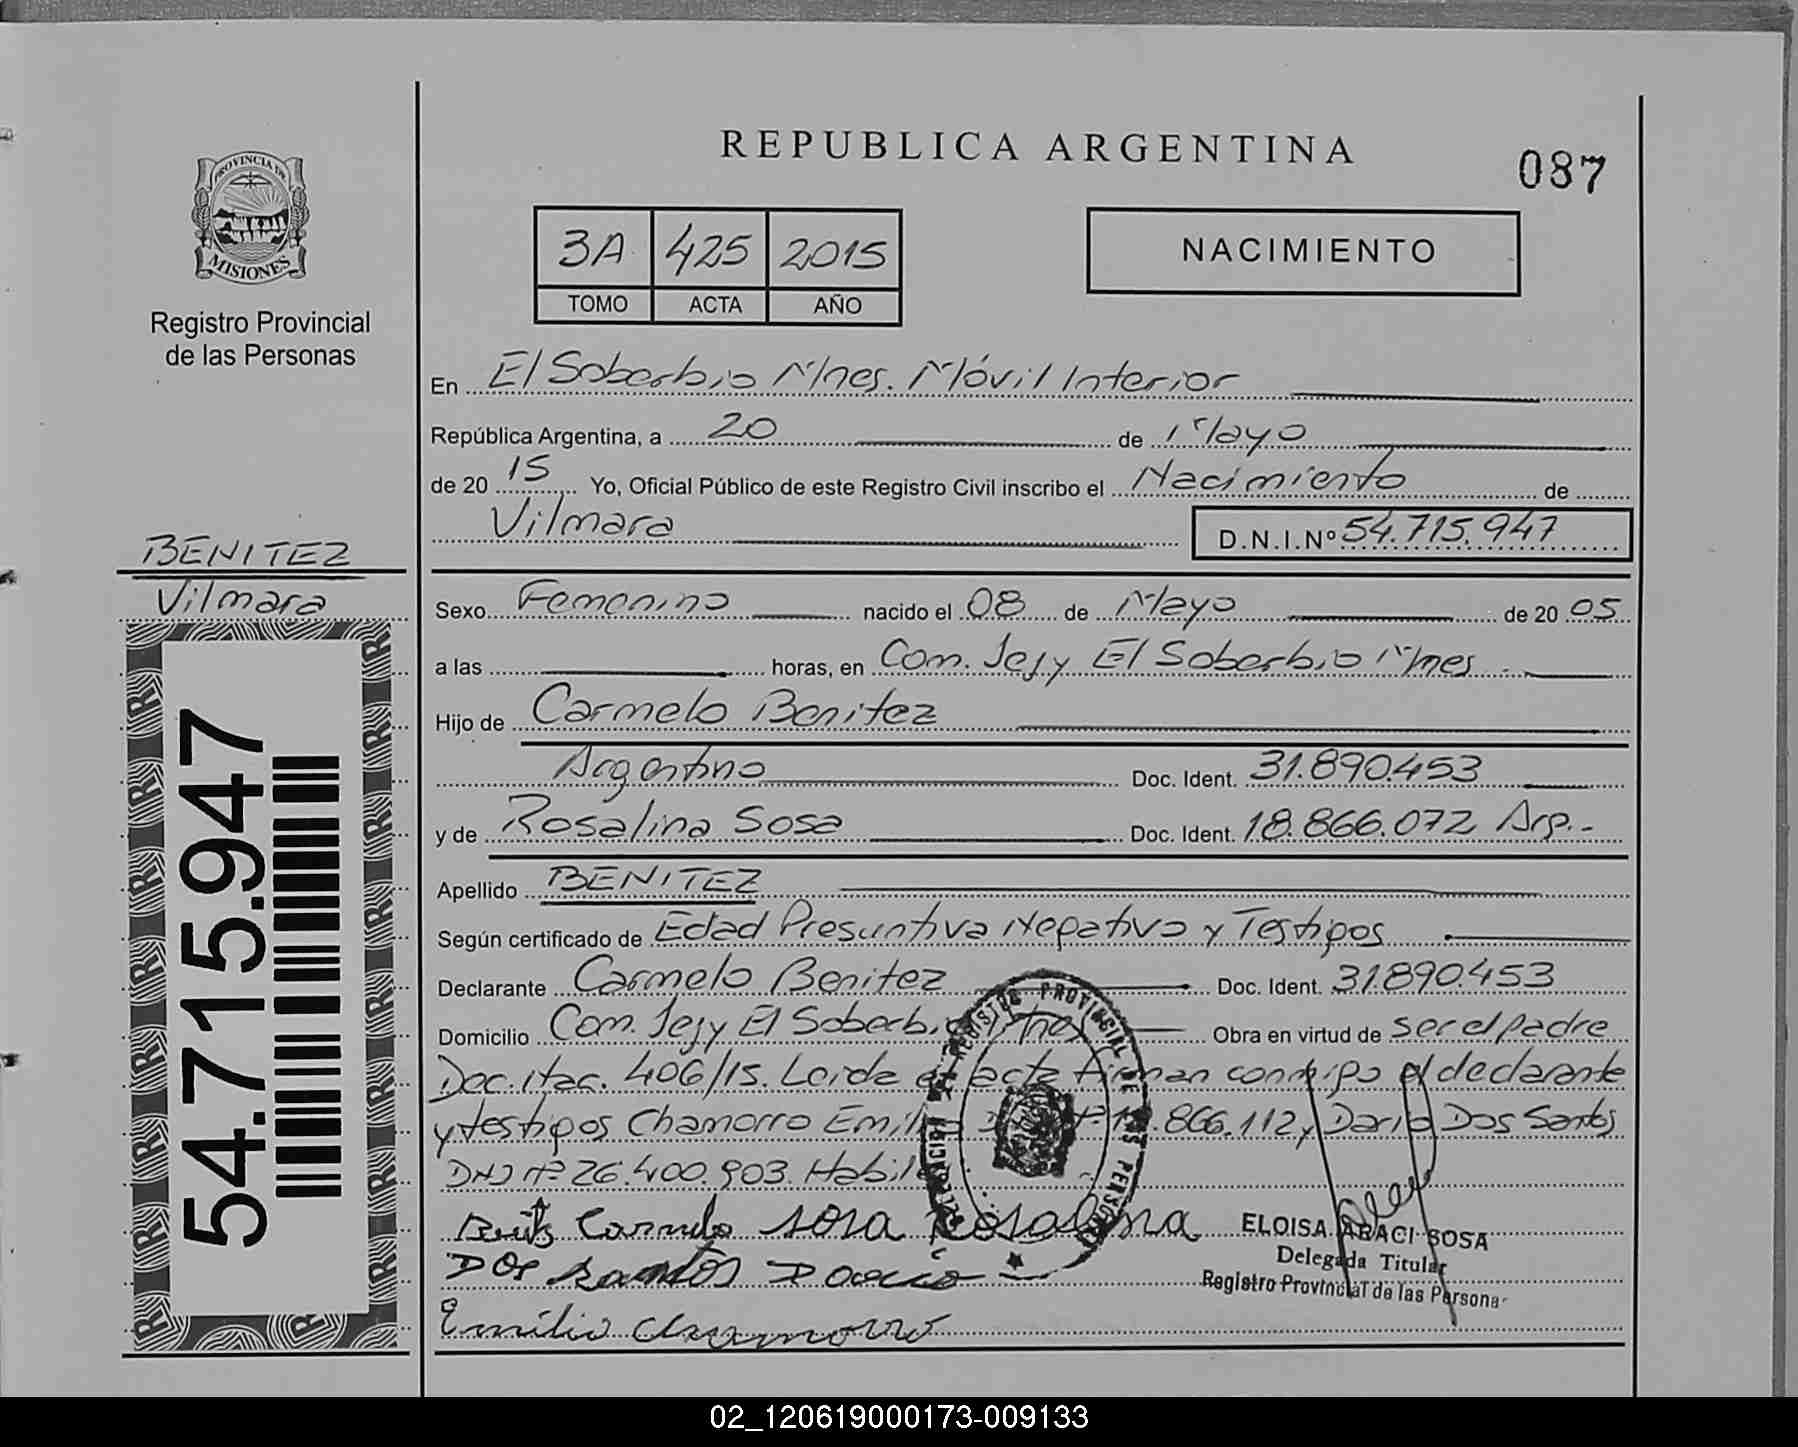 REPUBLICA ARGENTINA
087
PROVINCIA DE
MISIONES
Registro Provincial
de las Personas
3A 425 2015
TOMO ACTA AÑO
NACIMIENTO
En El Soberbio Mnes. Móvil Interior
República Argentina, a 20 de Mayo
de 20 15 Yo, Oficial Público de este Registro Civil inscribo el Nacimiento de
Vilmara
D.N.I.Nº 54.715.947
BENITEZ
Vilmara
54.715.947
Sexo Femenino nacido el 08 de Mayo de 20 05
a las horas, en Com. Jejy El Soberbio Mnes.
Hijo de Carmelo Benitez
Argentino Doc. Ident. 31.890.453
y de Rosalina Sosa Doc. Ident. 18.866.072 Arg.-
Apellido BENITEZ
Según certificado de Edad Presuntiva Negativo y Testigos
Declarante Carmelo Benitez Doc. Ident. 31.890.453
Domicilio Com. Jejy El Soberbio Mnes Obra en virtud de ser el padre
406/15. Leida el acta firman conmigo el declarante
y testigos Chamorro Emilio .866.112 y Dario Dos Santos
DNI Nº 26.400.903.
REGISTRO PROVINCIAL DE LAS PERSONAS
Carmelo sosa Rosalina
Dos santos Dario
Emilio chamorro
ELOISA ARACI SOSA
Delegada Titular
Registro Provincial de las Persona
02_120619000173-009133